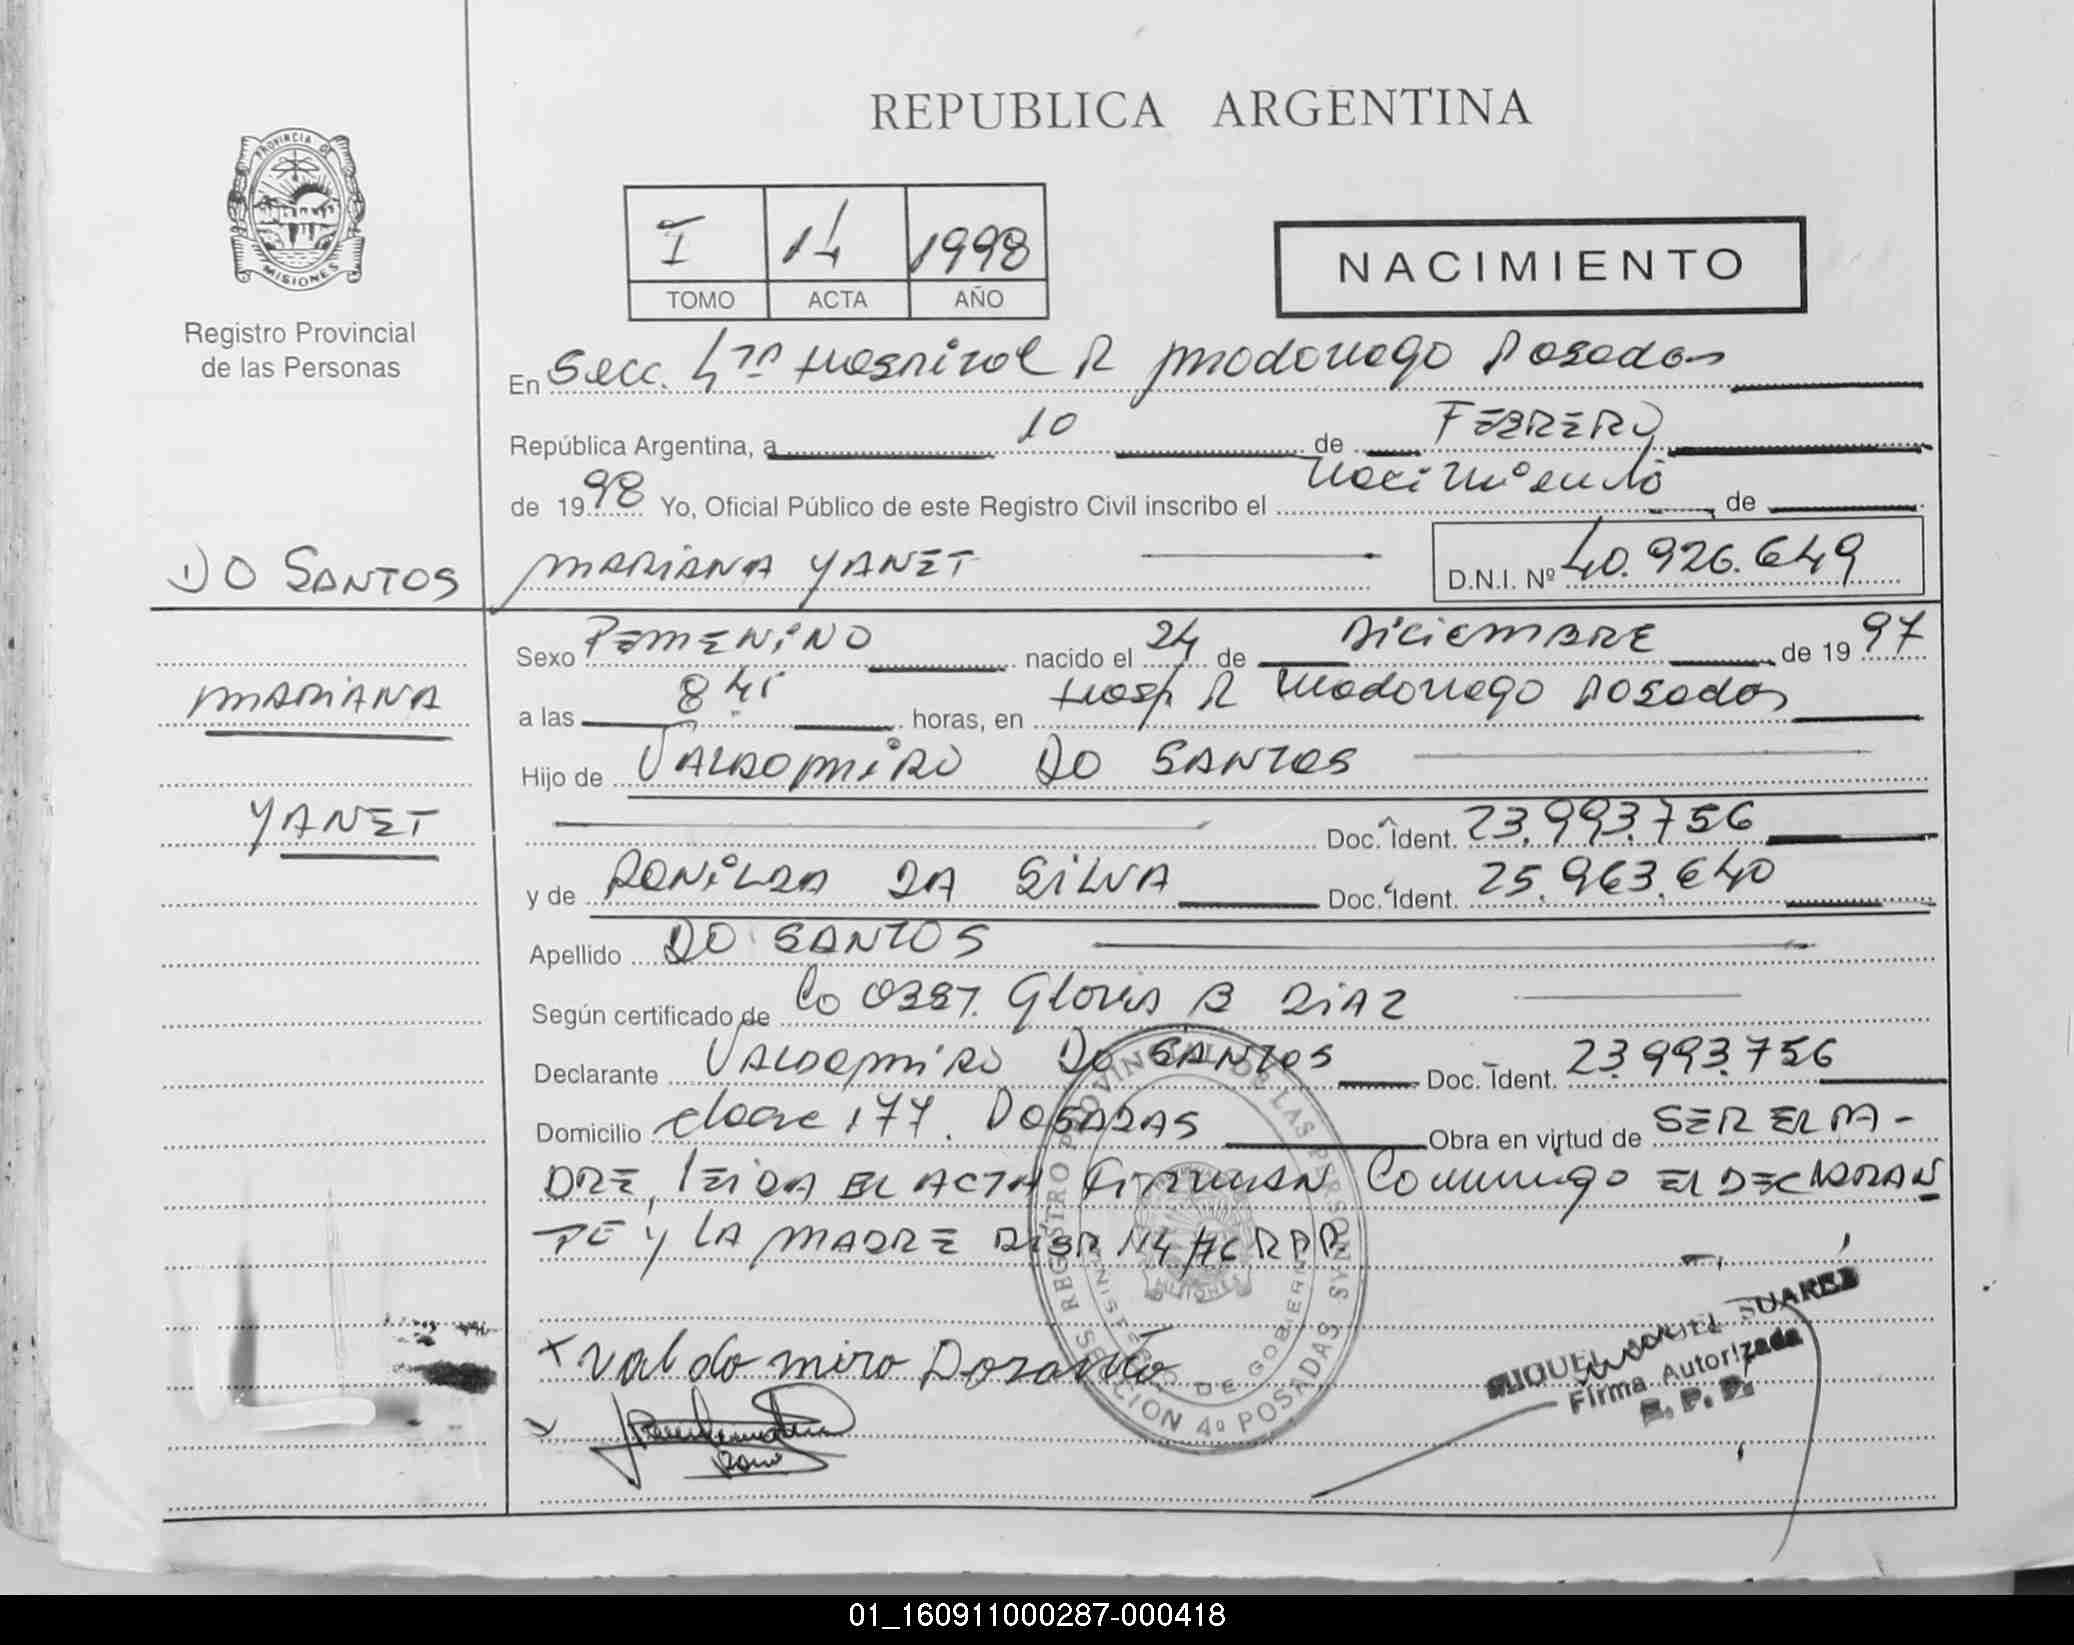 REPUBLICA ARGENTINA
PROVINCIA DE
MISIONES
Registro Provincial
de las Personas
I 14 1998
TOMO ACTA AÑO
NACIMIENTO
En Secc. 4ta Hospital R Madariaga Posadas
República Argentina, a 10 de FEBRERO
de 1998 Yo, Oficial Público de este Registro Civil inscribo el Nacimiento de
DO SANTOS MARIANA YANET D.N.I. Nº 40.926.649
Sexo FEMENINO nacido el 24 de DICIEMBRE de 1997
MARIANA
a las 8 45 horas, en Hosp R Madariaga Posadas
Hijo de VALDOMIRO DO SANTOS
YANET
Doc. Ident. 23.993.756
y de DA SILVA Doc. Ident. 25.963.640
Apellido DO SANTOS
Según certificado de Co Gloria B DIAZ
Declarante VALDOMIRO DO SANTOS Doc. Ident. 23.993.756
Domicilio 177. POSADAS Obra en virtud de SER EL PA-
DRE, LEIDA EL ACTA FIRMAN Conmigo EL DECLARAN
TE Y LA MADRE
REGISTRO PROVINCIAL DE LAS PERSONAS
MINISTERIO DE GOBIERNO
SECCION 4º POSADAS
x Valdomiro Dosanto
MIGUEL SUAREZ
Firma Autorizada
R. P. P.
01_160911000287-000418